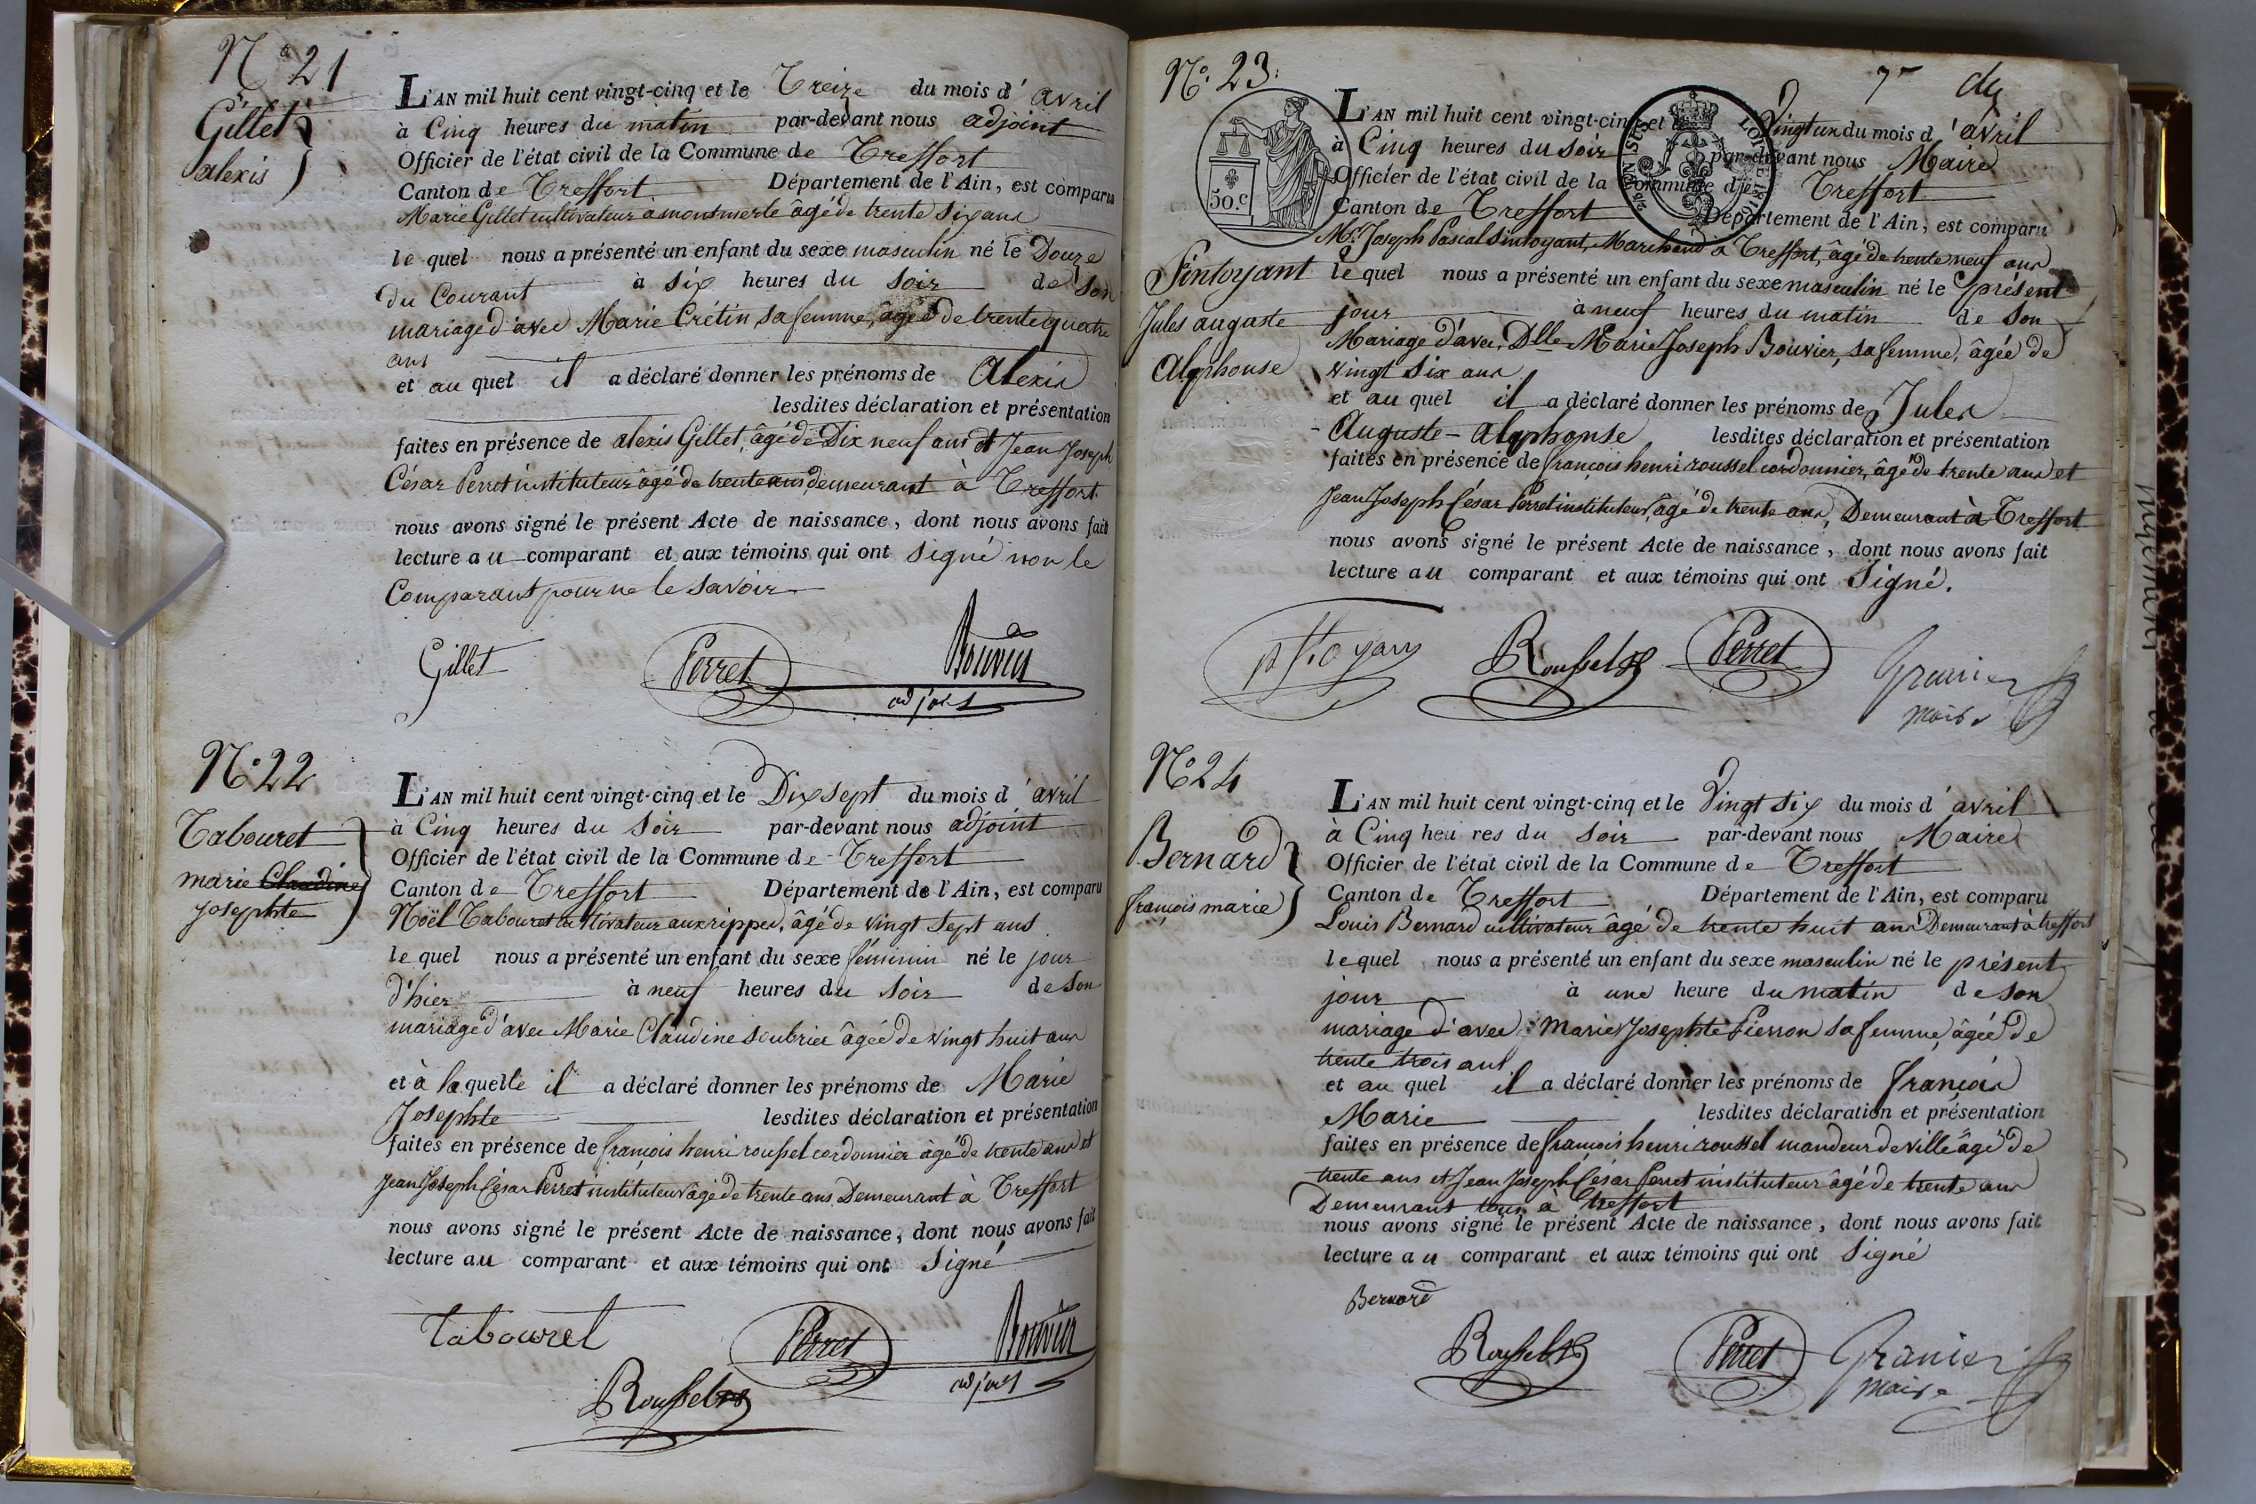 N.º 21
Gillet
alexis
L'AN mil huit cent vingt-cinq et le Treize du mois d' avril
à Cinq heures du matin par-devant nous adjoint
Officier de l'état civil de la Commune de Treffort
Canton de Treffort Département de l'Ain, est comparu
Marie Gillet cultivateur à montmerle âgé de trente six ans
lequel nous a présenté un enfant du sexe masculin né le Douze
du Courant à six heures du soir de son
mariage d'avec Marie Crétin, sa femme, âgée de trente quatre
ans
et au quel il a déclaré donner les prénoms de Alexis
lesdites déclaration et présentation
faites en présence de alexis Gillet, âgé de Dix neuf ans et Jean Joseph
César Perret instituteur âgé de trente ans demeurant à Treffort
nous avons signé le présent Acte de naissance, dont nous avons fait
lecture au comparant et aux témoins qui ont signé non le
Comparant pour ne le savoir
Gillet Perret Bouvier
adjoint
N.º 22
Tabouret
marie Claudine
josephte
L'AN mil huit cent vingt-cinq et le Dix sept du mois d' avril
à Cinq heures du soir par-devant nous adjoint
Officier de l'état civil de la Commune de Treffort
Canton de Treffort Département de l'Ain, est comparu
Noël Tabouret cultivateur aux rippes, âgé de vingt sept ans
lequel nous a présenté un enfant du sexe féminin né le jour
d'hier à neuf heures du soir de son
mariage d'avec Marie Claudine soubrier âgée de vingt huit ans
et à laquelle il a déclaré donner les prénoms de Marie
Josephte lesdites déclaration et présentation
faites en présence de françois henri roussel cordonnier âgé de trente ans et
Jean Joseph César Perret instituteur âgé de trente ans Demeurant à Treffort
nous avons signé le présent Acte de naissance, dont nous avons fait
lecture au comparant et aux témoins qui ont signé
Tabouret Perret Bouvier
Roussel adjoint
7me
N.º 23.
50.c
Sintoyant
Jules auguste
Alphonse
L'AN mil huit cent vingt-cinq et le Vingt un du mois d' avril
à Cinq heures du soir par-devant nous Maire
Officier de l'état civil de la Commune de Treffort
Canton de Treffort Département de l'Ain, est comparu
Mr. Joseph Pascal Sintoyant, Marchand à Treffort, âgé de trente neuf ans
le quel nous a présenté un enfant du sexe masculin né le présent
jour à neuf heures du matin de son
Mariage d'avec Dlle Marie Joseph Bouvier, sa femme, âgée de
vingt six ans
et au quel il a déclaré donner les prénoms de Jules
- Auguste - Alphonse lesdites déclaration et présentation
faites en présence de françois henri roussel cordonnier, âgé de trente ans et
Jean Joseph César Perret instituteur, âgé de trente ans, Demeurant à Treffort
nous avons signé le présent Acte de naissance, dont nous avons fait
lecture au comparant et aux témoins qui ont signé.
Roussel Perret Granier
maire
N.º 24
Bernard
françois marie
L'AN mil huit cent vingt-cinq et le Vingt six du mois d' avril
à Cinq heures du soir par-devant nous Maire
Officier de l'état civil de la Commune de Treffort
Canton de Treffort Département de l'Ain, est comparu
Louis Bernard cultivateur âgé de trente huit ans Demeurant à treffort
lequel nous a présenté un enfant du sexe masculin né le présent
jour à une heure du matin de son
mariage d'avec Marie Josephte Pierron sa femme, âgée de
trente trois ans
et au quel il a déclaré donner les prénoms de françois
Marie lesdites déclaration et présentation
faites en présence de françois henri roussel mandeur de ville âgé de
trente ans et Jean Joseph César Perret instituteur âgé de trente ans
Demeurant tous à Treffort
nous avons signé le présent Acte de naissance, dont nous avons fait
lecture au comparant et aux témoins qui ont signé
Bernard
Roussel Perret Granier
maire